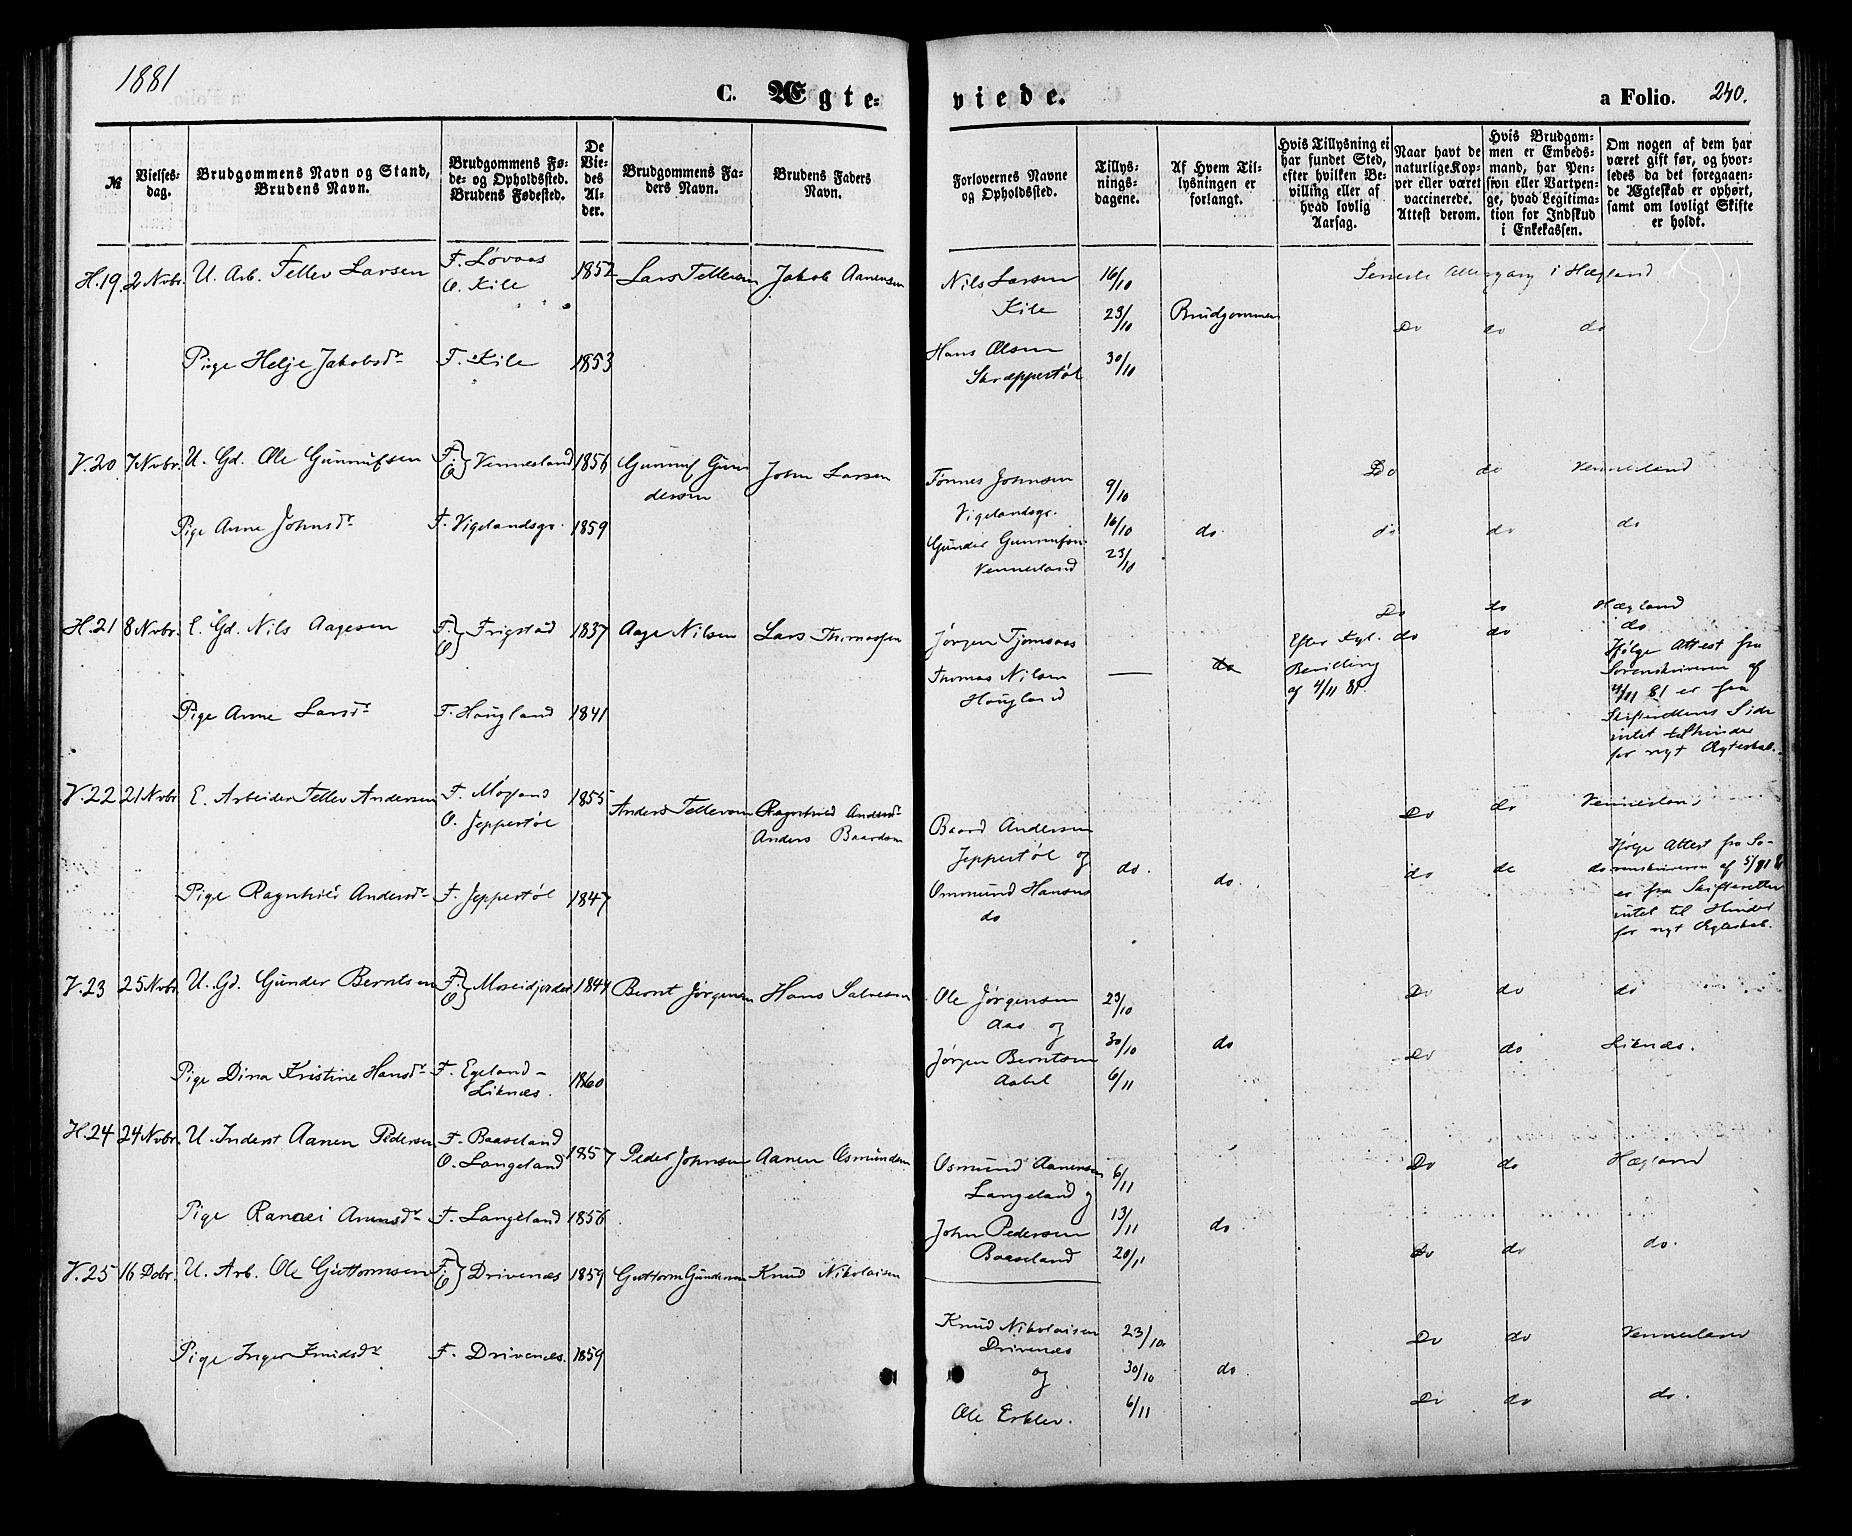 1881
C. Ægte-
viede.
a Folio. 240.
№
Vielses-
dag.
Brudgommens Navn og Stand,
Brudens Navn.
Brudgommens Fø-
de- og Opholdssted.
Brudens Fødested.
De
Vie-
des
Al-
der.
Brudgommens Fa-
ders Navn.
Brudens Faders
Navn.
Forlovernes Navne
og Opholdssted.
Tillys-
nings-
dagene.
Af Hvem Til-
lysningen er
forlangt.
Hvis Tillysning ei
har fundet Sted,
efter hvilken Be-
villing eller af
hvad lovlig
Aarsag.
Naar havt de
naturlige Kop-
per eller været
vaccinerede.
Attest derom.
Hvis Brudgom-
men er Embeds-
mand, har Pen-
sion eller Vartpen-
ge, hvad Legitima-
tion for Indskud
i Enkekassen.
Om nogen af dem har
været gift før, og hvor-
ledes da det foregaaen-
de Ægteskab er ophørt,
samt om lovligt Skifte
er holdt.
H.19. 2 Nvbr. U. Arb. Tellev Larsen F. Løvaas 1852 Lars Tellevsen Jakob Aanensen
O. Kile
Pige Helje Jakobsdr F. Kile 1853
Nils Larsen 16/10 i Hægland
Kile 23/10 Brudgommen Do do do
Hans Olsen 30/10
Skræppestøl
V.20 7 Nvbr. U. Gd. Ole Gunnufsen F. O. } Vennesland 1856 Gunnuf Gun- John Larsen
dersen
Pige Anne Johnsdr F. Vigelandsgr. 1859
Do do Vennesland
Tønnes Johnsen 9/10
Vigelandsgr. 16/10 do. do do do
Gunder Gunnufsen 23/10
Vennesland
H.21 8 Nvbr. E. Gd. Nils Aagesen F. O. } Frigstad 1837 Aage Nilsen Lars Thomassen
Pige Anne Larsdr F. Hougland 1841
Do do Hægland
Jørgen Tjomsaas Efter Kgl. do do do
Thomas Nilsen — do Bevilling Ifølge Attest fra
Hougland af 4/11 81. Sorenskriveren af
4/11 81 er fra
Skifterettens Side
intet til Hinder
for nyt Ægteskab.
V.22 21 Nvbr. E. Arbeider Tellev Andersen F. Moseland 1855 Anders Tellevsen Ragnhild Andersdr
O. Jeppestøl Anders Baardsen
Pige Ragnhild Andersdr F. Jeppestøl 1847
Do do Vennesland
Baard Andersen
Jeppestøl og do. do. do do do Ifølge Attest fra So-
Ommund Hansen renskriveren af
do er fra Skifteretten
intet til Hinder
for nyt Ægteskab.
V.23 25 Nvbr. U. Gd. Gunder Berntsen F. O. } Moseidjordet 1847 Bernt Jørgensen Hans Salvesen
Pige Dina Kristine Hansdr F. Egeland- 1860
Liknæs.
Ole Jørgensen 23/10 Do do do
Aas og
Jørgen Berntsen 30/10 do Do do Liknæs.
Aabel 6/11
H.24 24 Nvbr. U. Inderst Aanen Pedersen F. Baaseland 1857 Peder Johnsen Aanen Osmundsen
O. Langeland
Pige Ranvei Anensdr F. Langeland 1856
Osmund Aanensen 6/11 Do do Hægland
Langeland og
John Pedersen 13/11 do
Baaseland 20/11 Do do do.
V.25 16 Dcbr. U. Arb. Ole Guttormsen F. O. } Drivenæs 1859 Guttorm Gundersen Knud Nikolaisen
Pige Inger Knudsdr F. Drivenæs. 1859
Knud Nikolaisen 23/10 Do do Vennesland
Drivenæs
og 30/10 do.
Ole Erklev. 6/11 Do do do.